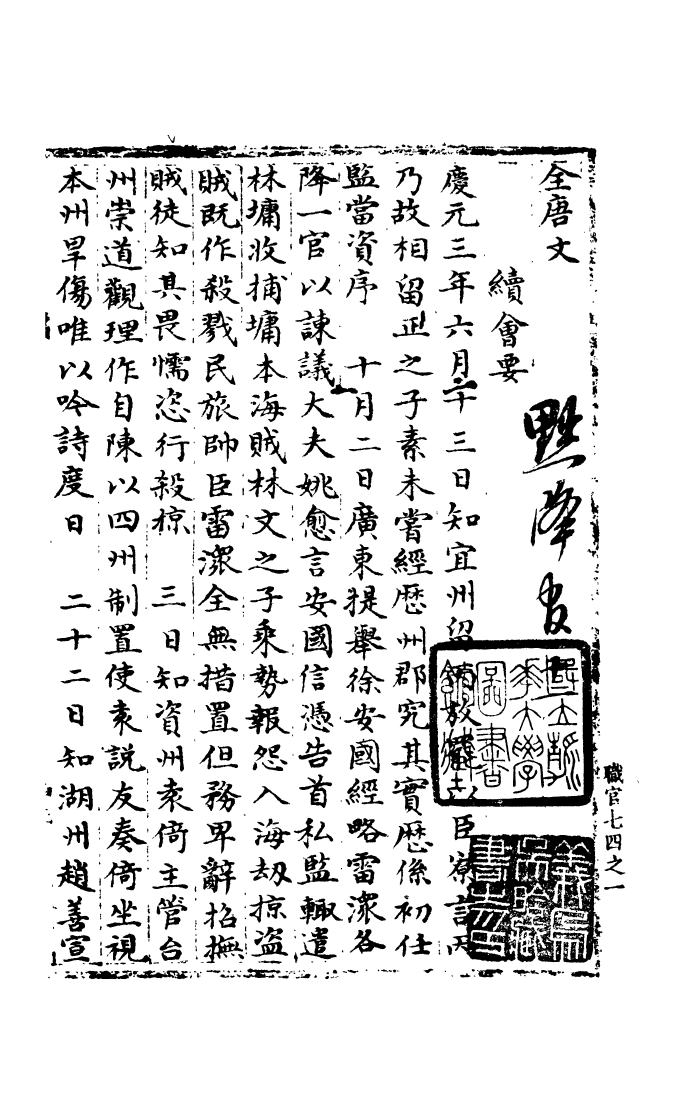 全唐文
黜降官
續會要
慶元三年六月二十三日知宜州留放罷以臣寮言丙
乃故相留正之子素未嘗經歷州郡究其實歷係初任
監當資序　十月二日廣東提舉徐安國經略雷潨各
降一官以諫議大夫姚愈言安國信憑告首私監輙遣
林墉收捕墉本海賊林文之子乘勢報怨入海劫掠盜
賊既作殺戮民旅帥臣雷潨全無措置但務卑辭招撫
賊徒知其畏懦恣行殺掠　三日知資州袁倚主管台
州崇道觀理作自陳以四州制置使袁說友奏倚坐視
本州旱傷唯以吟詩度日　二十二日知湖州趙善宣
國立清華大學圖書館
職官七四之一